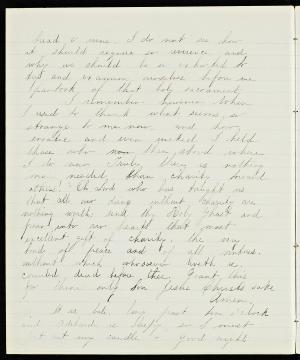 head & mine. I do not see how
it should require so
why we should be so exhorted to
try and examine ourselves before we
partook of that holy sacrament
I remember however when
I used to think what seems so
strange to me now and how
erratic and even wicked I held
those who now then stood where
I do now Truly there is nothing
needed than charity towards
others. "Oh Lord who has taught us
that all our doings without charity are
nothing worth, send thy Holy Ghost and
pour into our hearts that most
excellent gift of charity, the very
bond of peace and of all virtues
without which whosoever liveth is
counted dead before thee. Grant this
for thine only son Jesus Christ's sake
Amen."
It is late, long past ten o'clock
and is sleepy so I must
put out my candle - good night